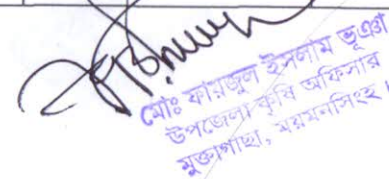 মোঃ ফয়জুল ইসলাম ভূঞা
উপজেলা কৃষি অফিসার
মুক্তাগাছা, ময়মনসিংহ।